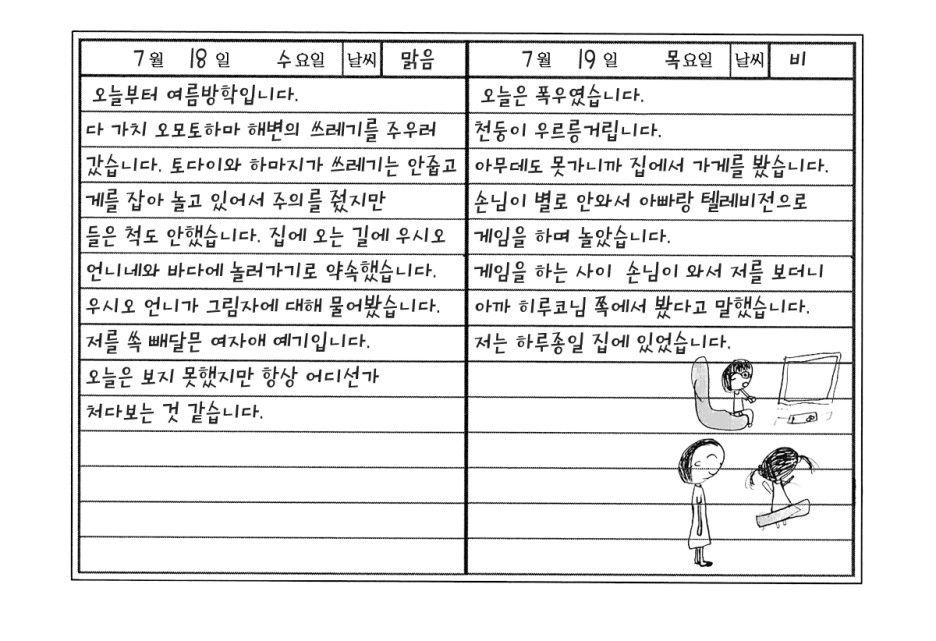 7월 18일 수요일 날씨 맑음
오늘부터 여름방학입니다.
다 가치 오모토하마 해변의 쓰레기를 주우러
갔습니다. 토다이와 하마지가 쓰레기는 안줍고
게를 잡아 놀고 있어서 주의를 줬지만
들은 척도 안했습니다. 집에 오는 길에 우시오
언니네와 바다에 놀러가기로 약속했습니다.
우시오 언니가 그림자에 대해 물어봤습니다.
저를 쏙 빼달믄 여자애 예기입니다.
오늘은 보지 못했지만 항상 어디선가
처다보는 것 같습니다.
7월 19일 목요일 날씨 비
오늘은 폭우였습니다.
천둥이 우르릉거립니다.
아무데도 못가니까 집에서 가게를 봤습니다.
손님이 별로 안와서 아빠랑 텔레비전으로
게임을 하며 놀았습니다.
게임을 하는 사이 손님이 와서 저를 보더니
아까 히루코님 쪽에서 봤다고 말했습니다.
저는 하루종일 집에 있었습니다.